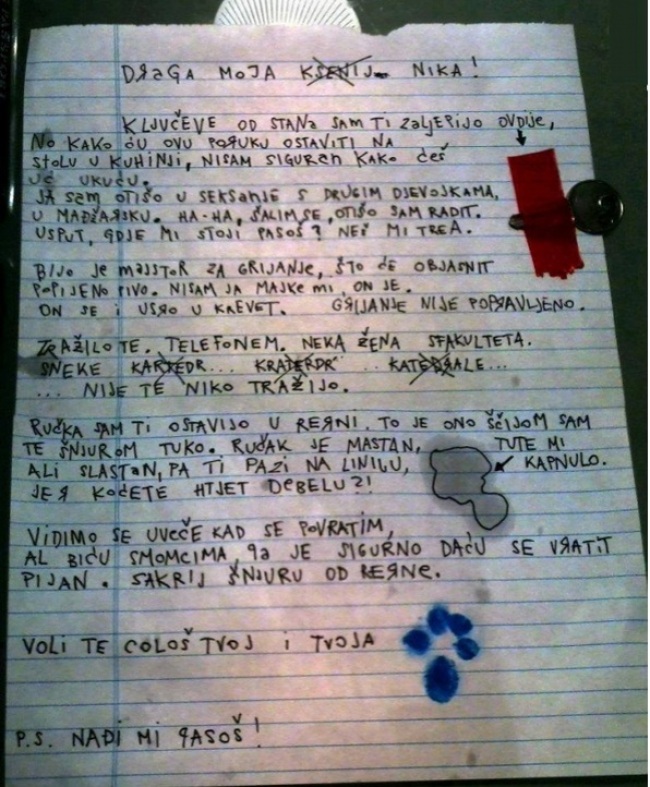 DRAGA MOJA KSENIJ NIKA!
KLJUČEVE OD STANA SAM TI ZALJEPIJO OVDIJE,
NO KAKO ĆU OVU PORUKU OSTAVITI NA
STOLU U KUHINJI, NISAM SIGURAN KAKO ĆEŠ
UĆ UKUĆU.
JA SAM OTIŠO U SEKSANJE S DRUGIM DJEVOJKAMA,
U MADŽARSKU. HA-HA, ŠALIM SE, OTIŠO SAM RADIT.
USPUT, GDJE MI STOJI PASOŠ? NEĆ MI TREA.
BIJO JE MAJSTOR ZA GRIJANJE, ŠTO ĆE OBJASNIT
POPIJENO PIVO. NISAM JA MAJKE MI, ON JE.
ON SE I USRO U KREVET. GRIJANJE NIJE POPRAVLJENO.
ZRAŽILO TE. TELEFONEM. NEKA ŽENA SFAKULTETA.
SNEKE KARTEDR... KRATERDR .. KATEDRALE...
... NIJE TE NIKO TRAŽIJO.
RUČKA SAM TI OSTAVIJO U RERNI. TO JE ONO ŠČIJOM SAM
TE ŠNJUROM TUKO. RUČAK JE MASTAN, TUTE MI
ALI SLASTAN, PA TI PAZI NA LINIJU, KAPNULO.
JER KOĆETE HTJET DEBELU?!
VIDIMO SE UVEČE KAD SE POVRATIM,
AL BIĆU SMOMCIMA, PA JE SIGURNO DAĆU SE VRATIT
PIJAN. SAKRIJ ŠNJURU OD RERNE.
VOLI TE COLOŠ TVOJ I TVOJA
P.S. NAĐI MI PASOŠ!